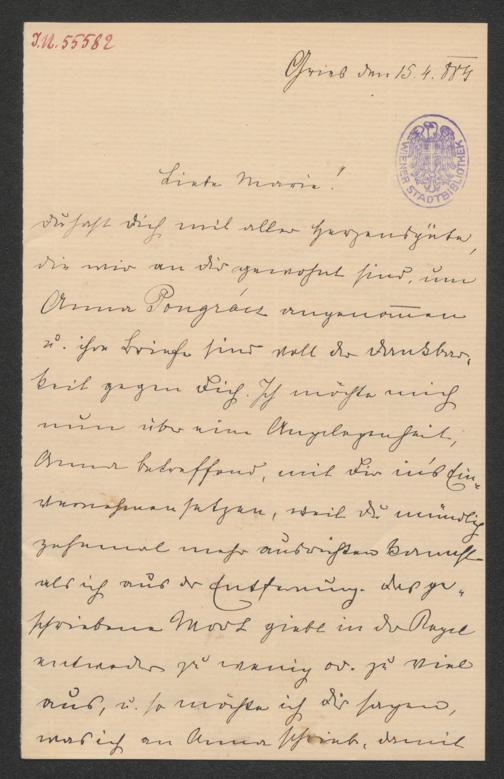 I.N. 55562
Gries den 15. 4. 884
WIENER STADTBIBLIOTHEK
Liebe Marie!
Du hast Dich mit aller Herzensgüte,
die wir an Dir gewohnt sind, um
Anna Pongrácz angenommen
u. ihre Briefe sind voll der Dankbar-
keit gegen Dich. Ich möchte mich
nun über eine Angelegenheit,
Anna betreffend, mit Dir in's Ein-
vernehmen setzen, weil Du mündlich
zehnmal mehr ausrichten kannst
als ich aus der Entfernung. Das ge-
schriebene Wort giebt in der Regel
entweder zu wenig od. zu viel
aus, u. so möchte ich Dir sagen,
was ich an Anna schrieb, damit